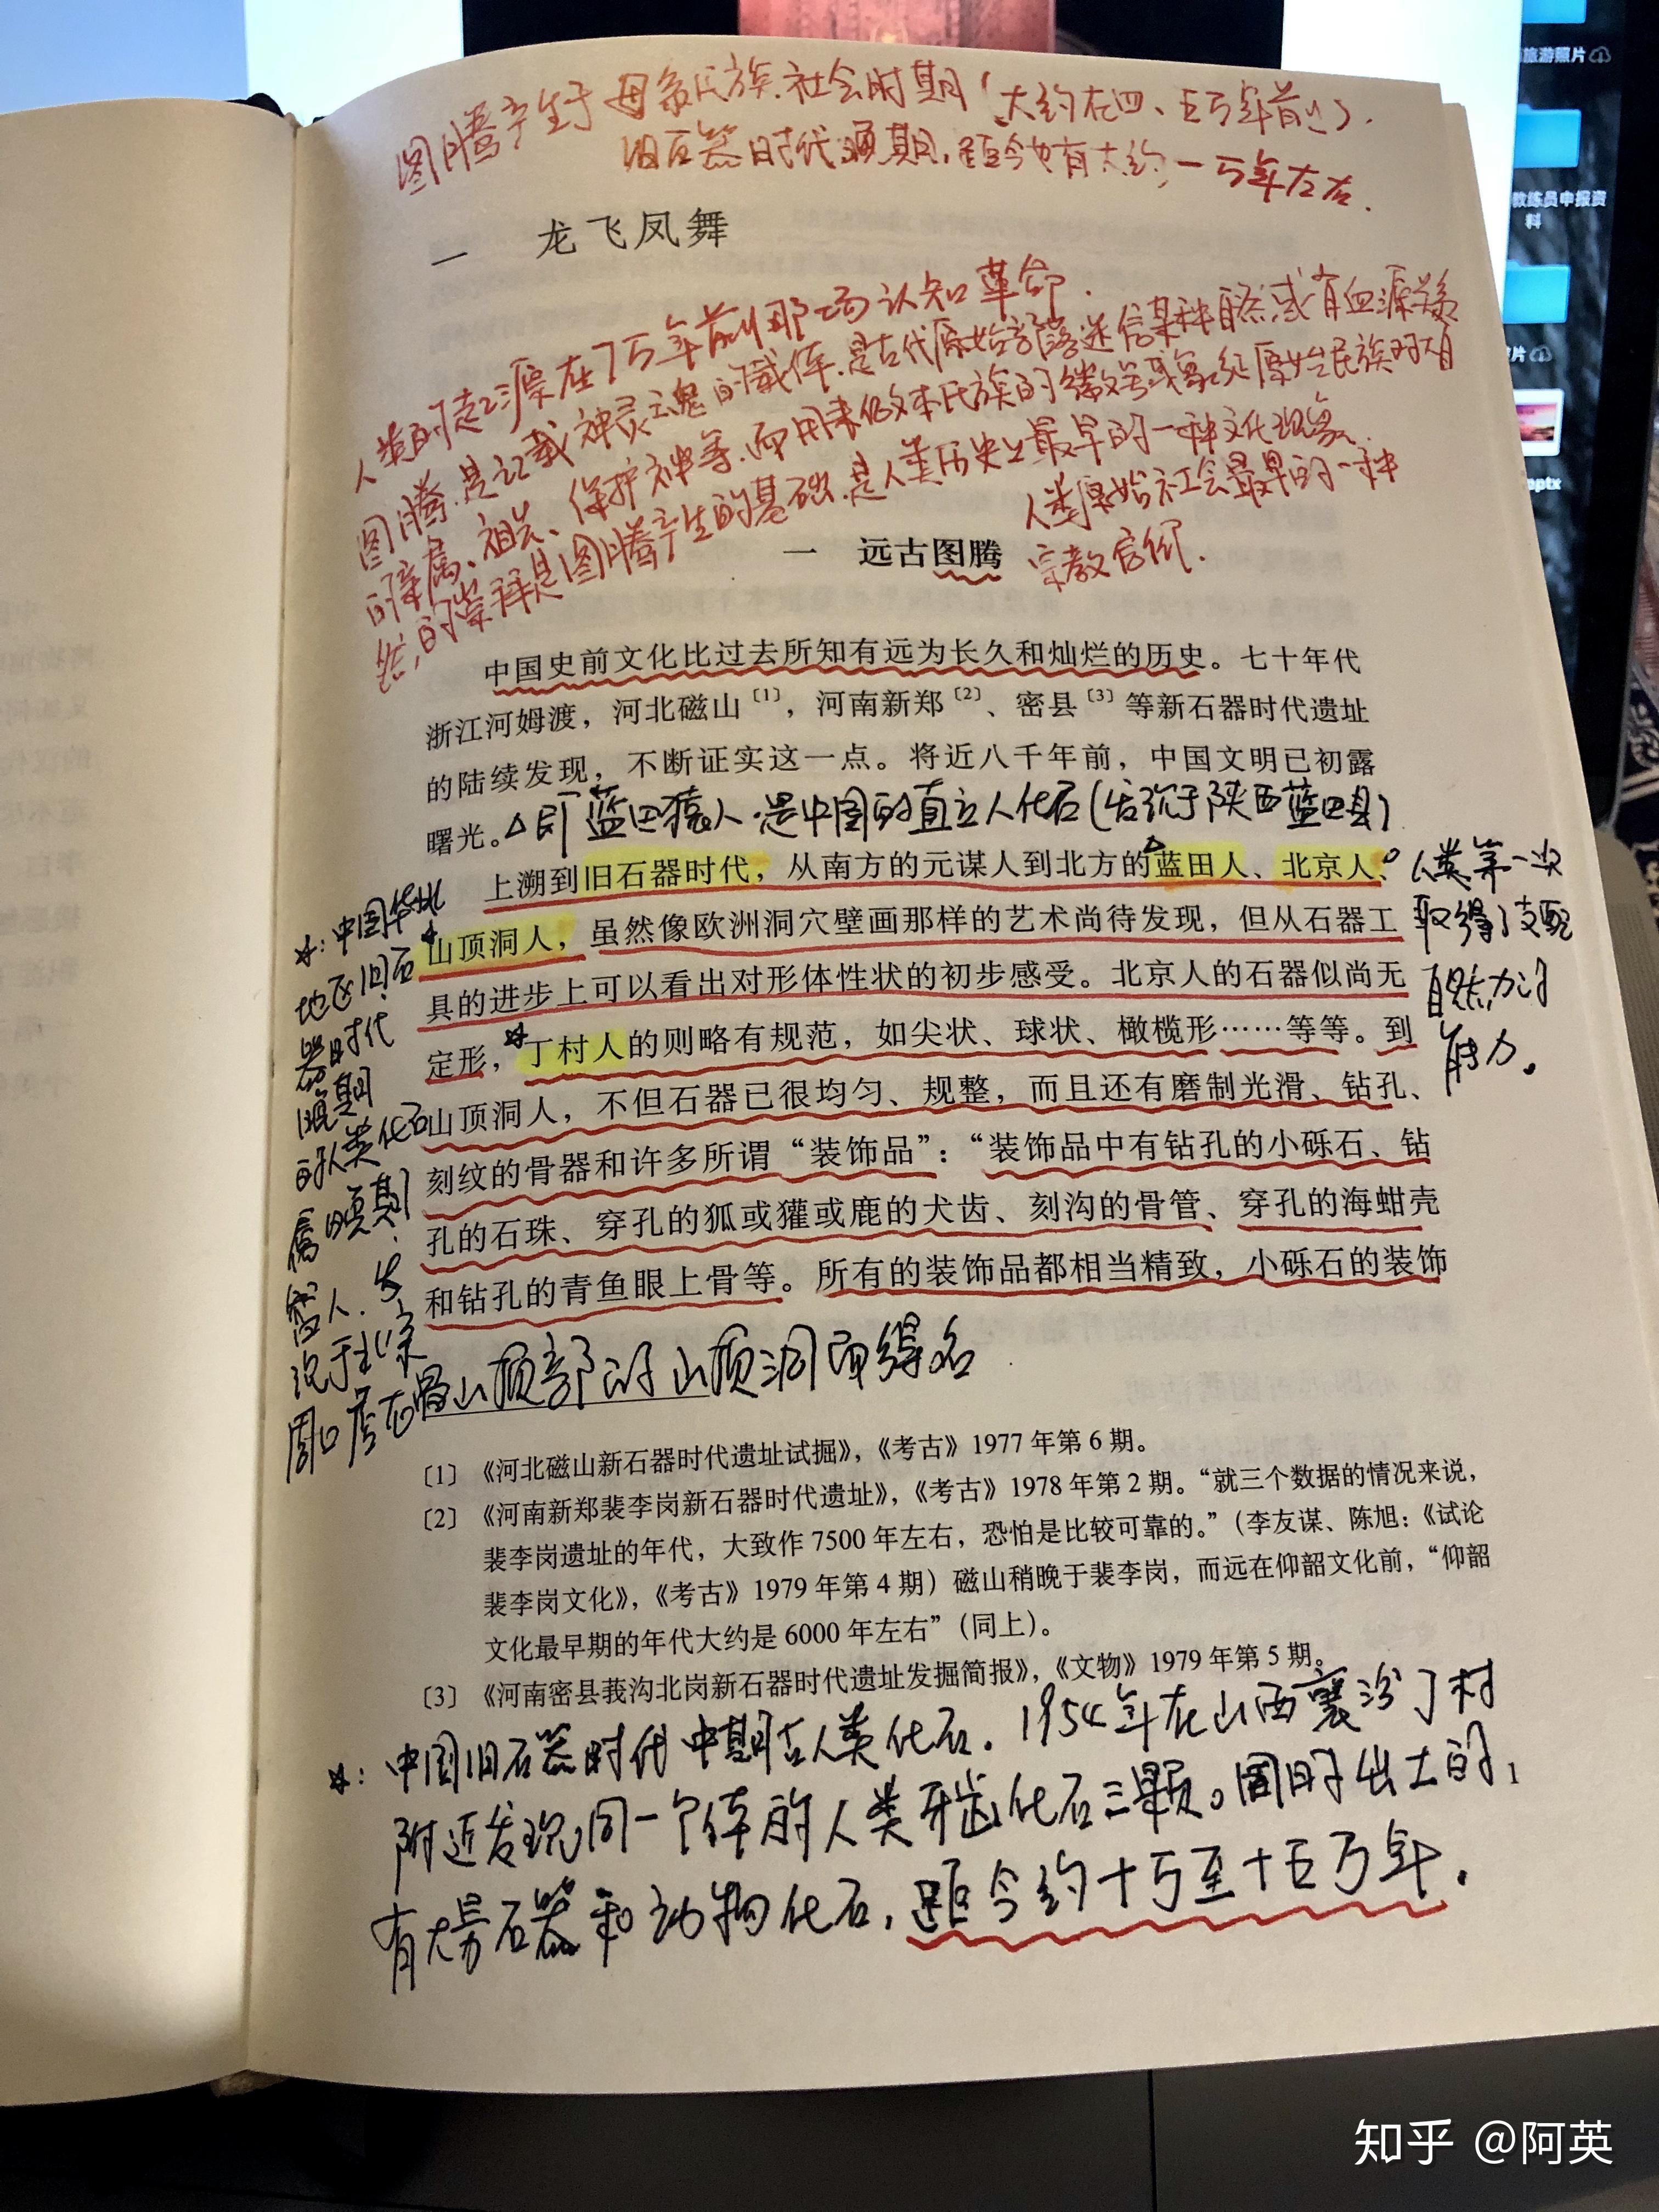 旅游照片
教练员申报资
料
片
pptx
图腾产生于母系氏族社会时期(大约在四、五万年前).
旧石器时代晚期,距今也有大约一万年左右.
一 龙飞凤舞
人类的起源在7万年前那场认知革命.
图腾.是记载神灵魂的载体.是古代原始部落迷信某种自然或有血源关系
的亲属、祖先、保护神等.而用来做本氏族的徽号或象征.原始民族对自
然的崇拜是图腾产生的基础.是人类历史上最早的一种文化现象.
人类原始社会最早的一种
宗教信仰.
一 远古图腾
中国史前文化比过去所知有远为长久和灿烂的历史。七十年代
浙江河姆渡,河北磁山〔1〕,河南新郑〔2〕、密县〔3〕等新石器时代遗址
的陆续发现,不断证实这一点。将近八千年前,中国文明已初露
曙光。
△即蓝田猿人.是中国的直立人化石(发现于陕西蓝田县)
上溯到旧石器时代,从南方的元谋人到北方的蓝田人、北京人、
山顶洞人,虽然像欧洲洞穴壁画那样的艺术尚待发现,但从石器工
具的进步上可以看出对形体性状的初步感受。北京人的石器似尚无
定形,丁村人的则略有规范,如尖状、球状、橄榄形……等等。到
山顶洞人,不但石器已很均匀、规整,而且还有磨制光滑、钻孔、
刻纹的骨器和许多所谓“装饰品”:“装饰品中有钻孔的小砾石、钻
孔的石珠、穿孔的狐或獾或鹿的犬齿、刻沟的骨管、穿孔的海蚶壳
和钻孔的青鱼眼上骨等。所有的装饰品都相当精致,小砾石的装饰
人类第一次
取得了支配
自然力的
能力.
☆:中国华北
地区旧石
器时代
晚期
的人类化石
属晚期
智人.发
现于北京
周口店龙骨山顶部的山顶洞而得名
〔1〕《河北磁山新石器时代遗址试掘》,《考古》1977年第6期。
〔2〕《河南新郑裴李岗新石器时代遗址》,《考古》1978年第2期。“就三个数据的情况来说,
裴李岗遗址的年代,大致作7500年左右,恐怕是比较可靠的。”(李友谋、陈旭:《试论
裴李岗文化》,《考古》1979年第4期)磁山稍晚于裴李岗,而远在仰韶文化前,“仰韶
文化最早期的年代大约是6000年左右”(同上)。
〔3〕《河南密县莪沟北岗新石器时代遗址发掘简报》,《文物》1979年第5期。
☆:中国旧石器时代中期古人类化石.1954年在山西襄汾丁村
附近发现同一个体的人类牙齿化石三颗。同时出土的,
有大量石器和动物化石,距今约十万至十五万年.
知乎 @阿英